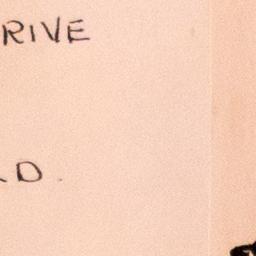 RIVE
D.